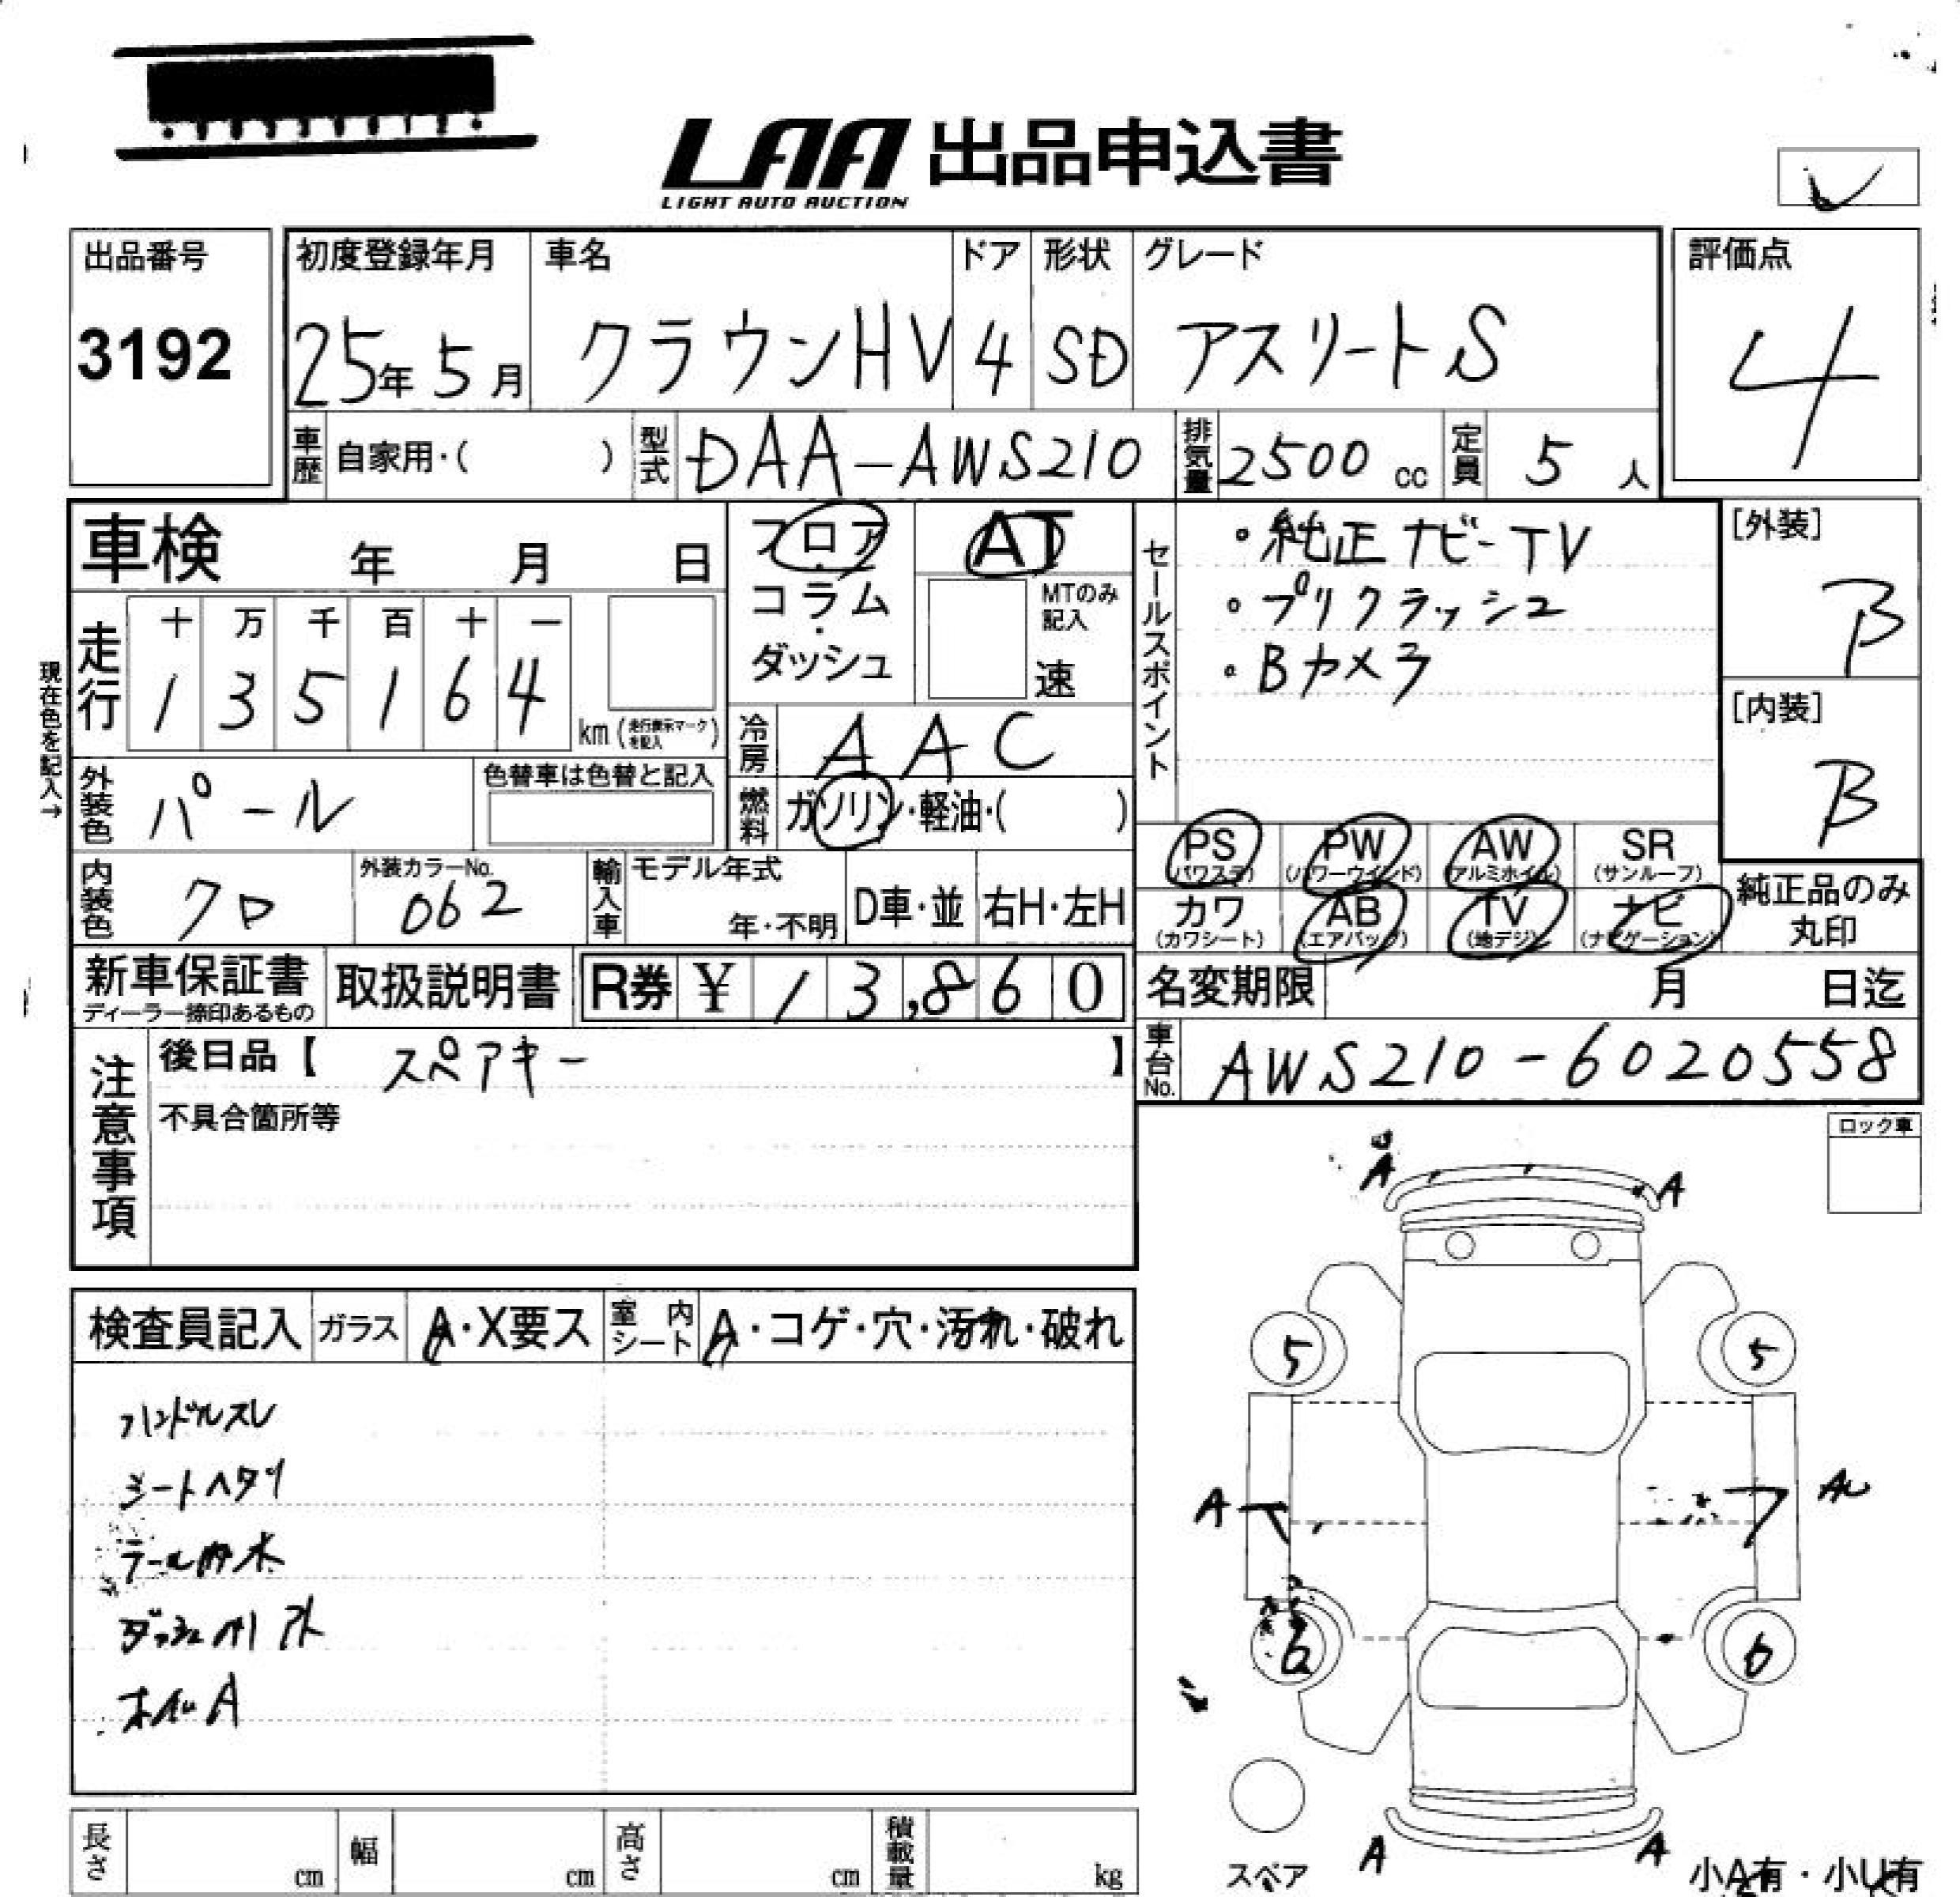 LAA 出品申込書
LIGHT AUTO AUCTION
出品番号
3192
初度登録年月 車名 ドア 形状 グレード
25年 5月 クラウンHV 4 SD アスリートS
評価点
4
車歴 自家用・( ) 型式 DAA-AWS210 排気量 2500 cc 定員 5 人
車検 年 月 日
フロア・コラム・ダッシュ
AT
MTのみ記入
速
セールスポイント
・純正ナビ-TV
・プリクラッシュ
・Bカメラ
[外装]
B
[内装]
B
現在色を記入→
走行 十 万 千 百 十 一
1 3 5 1 6 4 km (走行表示マークを記入)
冷房 AAC
燃料 ガソリン・軽油・( )
外装色 パール
色替車は色替と記入
内装色 クロ
外装カラーNo.
062
輸入車 モデル年式
年・不明 D車・並 右H・左H
PS (パワステ) PW (パワーウインド) AW (アルミホイル) SR (サンルーフ)
カワ (カワシート) AB (エアバッグ) TV (地デジ) ナビ (ナビゲーション)
純正品のみ丸印
新車保証書
ディーラー捺印あるもの
取扱説明書
R券 ¥ 13,860
名変期限 月 日迄
車台No. AWS210-6020558
注意事項
後日品【 スペアキー 】
不具合箇所等
ロック車
検査員記入 ガラス A・X要ス 室内シート A・コゲ・穴・汚れ・破れ
ハンドルスレ
シートヘタリ
ホイルA
A
A
5 5
A
6
A A
スペア
小A有・小U有
長さ cm 幅 cm 高さ cm 積載量 kg